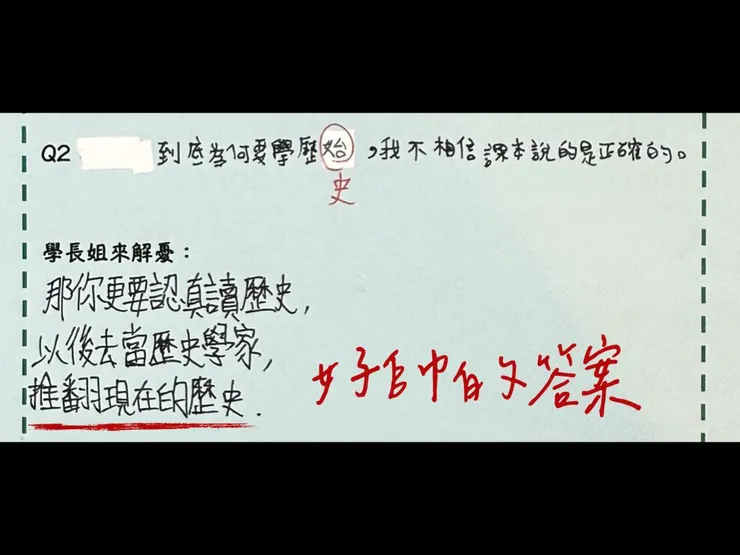 Q2 到底為何要學歷始，我不相信課本說的是正確的。
史
學長姐來解憂：
那你更要認真讀歷史，
以後去當歷史學家，
推翻現在的歷史.
好帥的答案